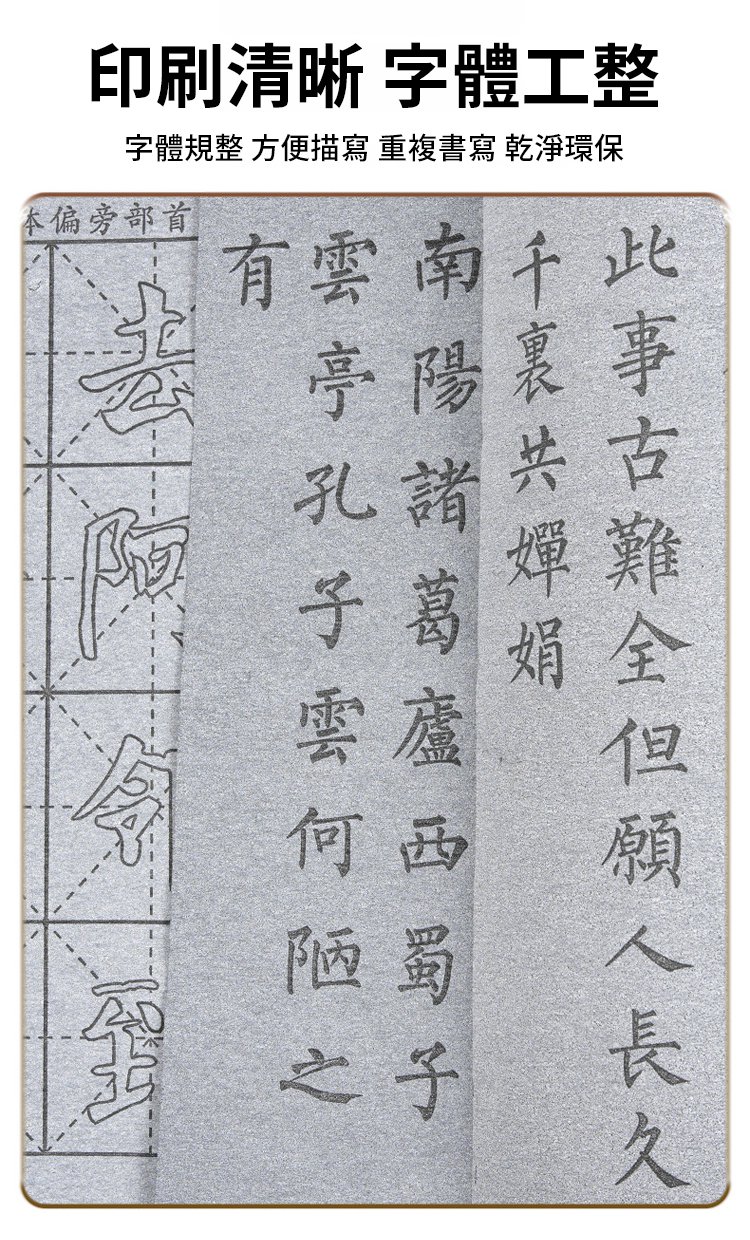 印刷清晰 字體工整
字體規整 方便描寫 重複書寫 乾淨環保
此事古難全但願人長久
千裏共嬋娟
南陽諸葛廬西蜀子
雲亭孔子雲何陋之
有
本偏旁部首
去
阿
令
至